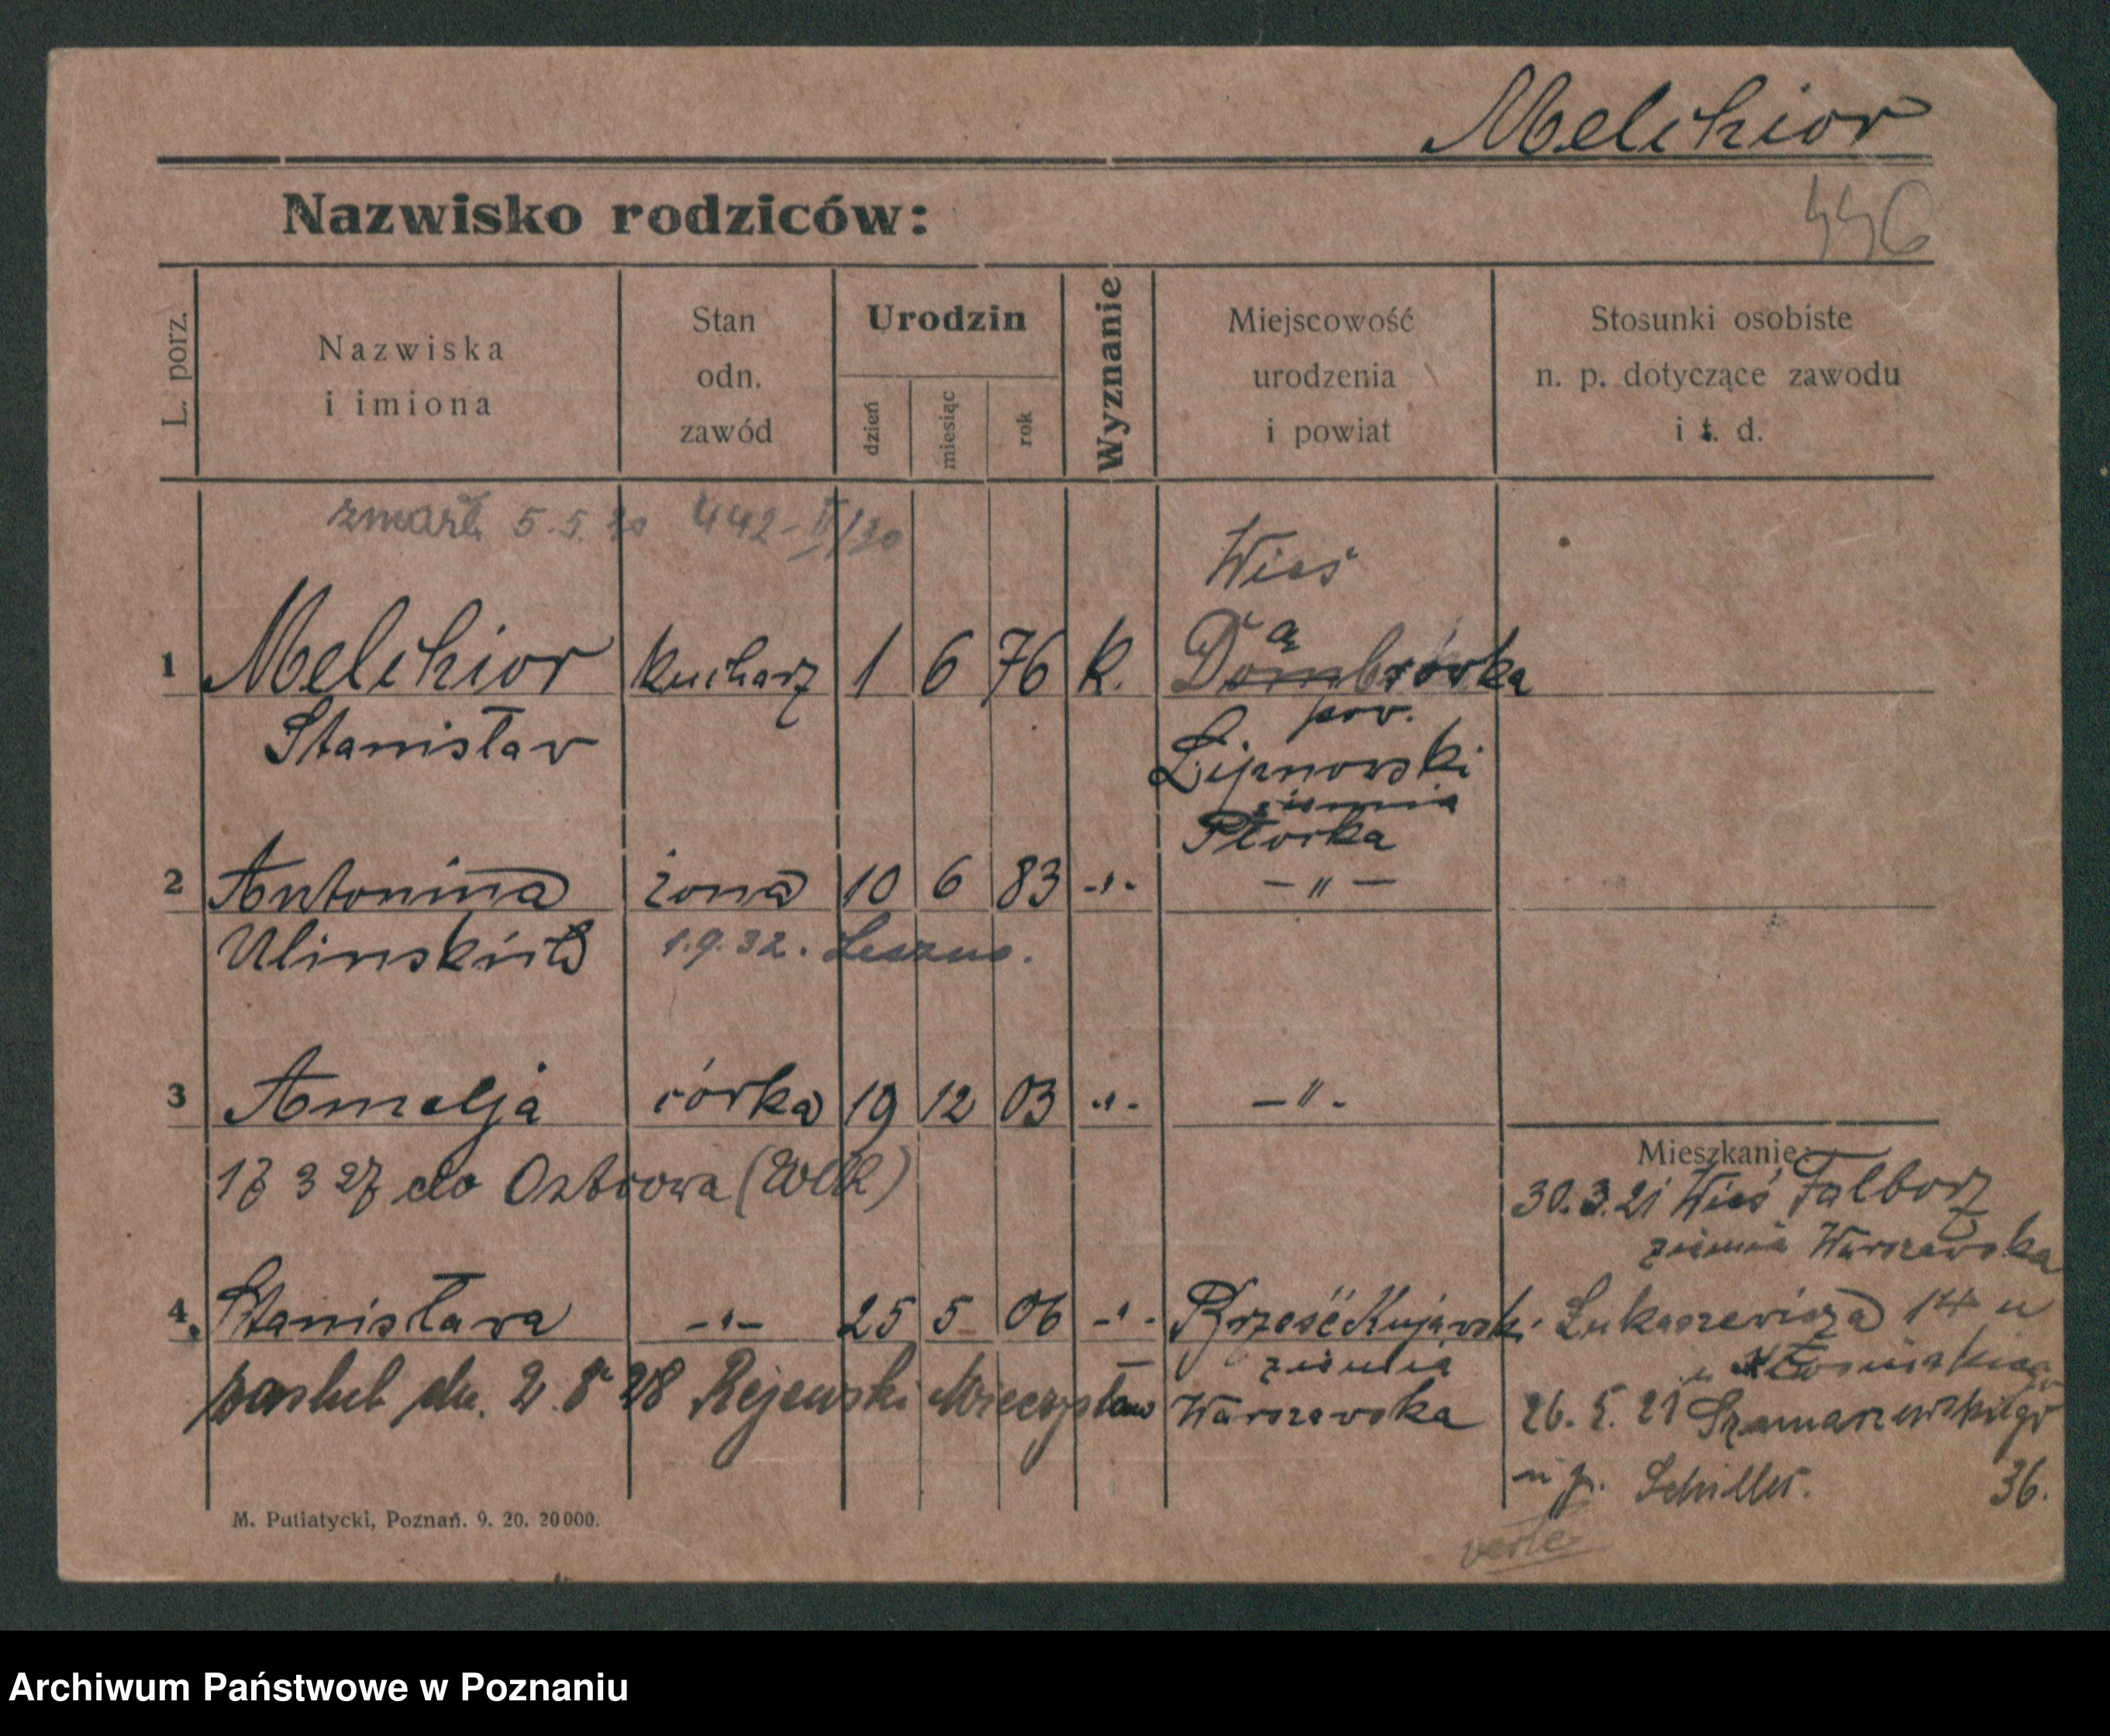 Melchior
Nazwisko rodziców:
446
L. porz.
Nazwiska
i imiona
Stan
odn.
zawód
Urodzin
dzień
miesiąc
rok
Wyznanie
Miejscowość
urodzenia
i powiat
Stosunki osobiste
n. p. dotyczące zawodu
i t. d.
zmarł 5.5.30 442-II/30
Wieś
1 Melchior kucharz 1 6 76 k. Dąbrówka
pow.
Stanisław Lipnowski
ziemia
Płocka
2 Antonina żona 10 6 83 -"- -"-
Ulinskich 1.9.32. Leszno.
3 Amelja córka 19 12 03 -"- -"-
Mieszkanie:
17 3 27 do Ostrowa (Wlk) 30.3.21 Wieś Falborz
ziemia Warszawska
4. Stanisława -"- 25 5 06 -"- Brześć Kujawski Łukaszewicza 14 u
ziemia
zaślub dn. 2.8 28 Rejewski Mieczysław Warszawska 26.5.21 Szamarzewskiego
u p. Schiller. 36.
M. Putiatycki, Poznań. 9. 20. 20000.
verte
Archiwum Państwowe w Poznaniu